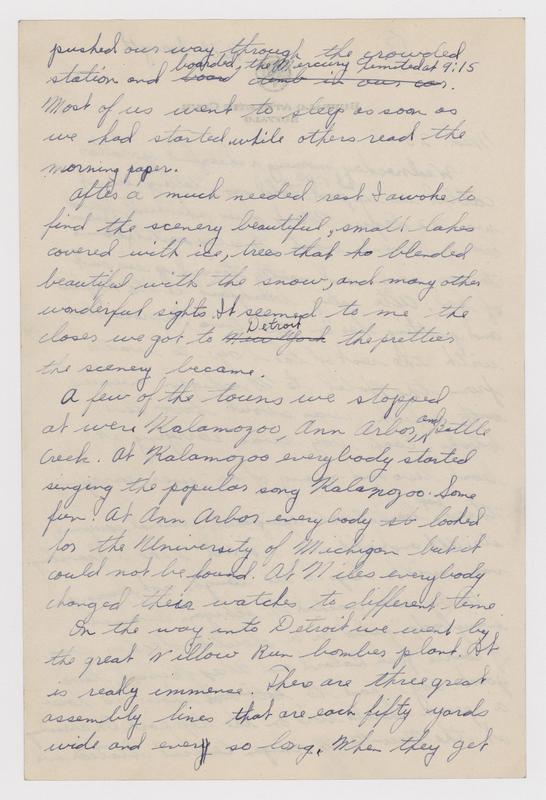 pushed our way through the crowded
boarded, the Mercury Limited at 9:15
station and board climb in our car.
Most of us went to sleep as soon as
we had started, while others read the
morning paper.
After a much needed rest I awoke to
find the scenery beautiful, small lakes
covered with ice, trees that ho blended
beautiful with the snow, and many other
wonderful sights. It seemed to me the
Detroit
closer we got to New York the prettier
the scenery became.
A few of the towns we stopped
and
at were Kalamozoo, Ann Arbor, Battle
Creek. At Kalamozoo everybody started
singing the popular song Kalamozoo. Some
fun! At Ann Arbor everybody st looked
for the University of Michigan but it
could not be found. At Niles everybody
changed their watches to different time
On the way into Detroit we went by
the great Willow Run bomber plant. It
is really immense. There are three great
assembly lines that are each fifty yards
wide and every so long. When they get